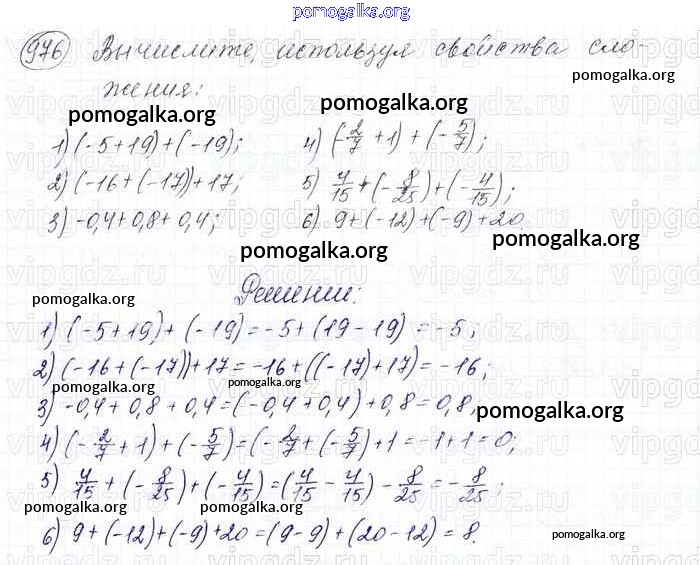 pomogalka.org
976 Вычислите, используя свойства сло-
pomogalka.org
жения:
pomogalka.org pomogalka.org
1) (-5+19)+(-19); 4) (-2/7 + 1) + (-5/7);
2) (-16+(-17))+17; 5) 4/15 + (-8/25) + (-4/15);
3) -0,4+0,8+0,4; 6) 9+(-12)+(-9)+20.
pomogalka.org pomogalka.org
pomogalka.org Решение:
1) (-5+19)+(-19)=-5+(19-19)=-5;
pomogalka.org
2) (-16+(-17))+17=-16+((-17)+17)=-16;
pomogalka.org
3) -0,4+0,8+0,4=(-0,4+0,4)+0,8=0,8;
pomogalka.org
4) (-2/7+1)+(-5/7)=(-2/7+(-5/7)+1=-1+1=0;
5) 4/15+(-8/25)+(-4/15)=(4/15-4/15)-8/25=-8/25;
pomogalka.org
pomogalka.org
6) 9+(-12)+(-9)+20=(9-9)+(20-12)=8.
pomogalka.org
vipgdz.ru